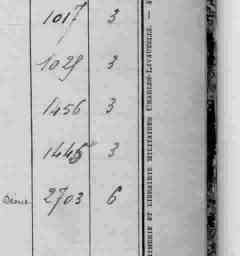 1017 3
1029 3
1456 3
1445 3
2703 6
IMERIE ET LIBRAIRIE MILITAIRES CHARLES-LAVAUZELLE. —